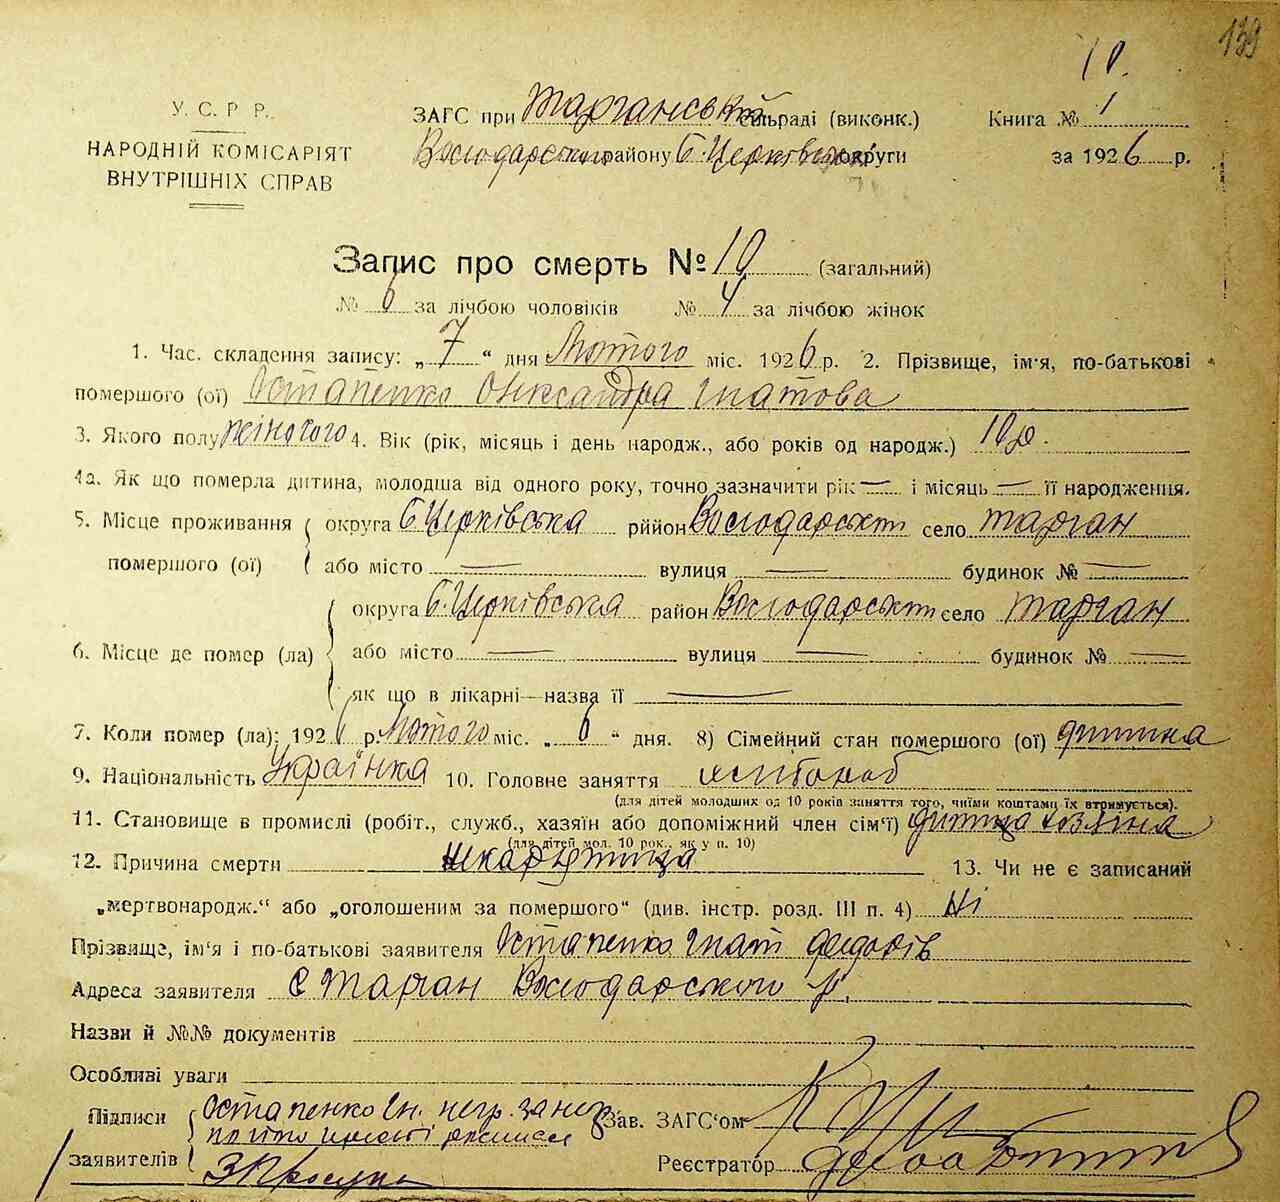 139
10.
У. С. Р. Р.
НАРОДНІЙ КОМІСАРІЯТ
ВНУТРІШНІХ СПРАВ
ЗАГС при Тарганській сільраді (виконк.) Книга № 1
Володарського району Б-Церківської округи за 1926 р.
Запис про смерть № 10 (загальний)
№ 6 за лічбою чоловіків № 4 за лічбою жінок
1. Час. складення запису: „7“ дня Лютого міс. 1926 р. 2. Прізвище, ім'я, по-батькові
помершого (ої) Остапенко Олександра Гнатова
3. Якого полу жіночого 4. Вік (рік, місяць і день народж., або років од народж.) 10 р.
4а. Як що померла дитина, молодша від одного року, точно зазначити рік — і місяць — її народження.
5. Місце проживання округа Б Церківська рййон Володарськ. село Тарган
помершого (ої) або місто — вулиця — будинок № —
округа Б. Церківська район Володарськ. село Тарган
6. Місце де помер (ла) або місто — вулиця — будинок № —
як що в лікарні—назва її —
7. Коли помер (ла): 1926 р. Лютого міс. „6“ дня. 8) Сімейний стан помершого (ої) дитина
9. Національність Українка 10. Головне заняття хлібороб
(для дітей молодших од 10 років заняття того, чиїми коштами їх втримується).
11. Становище в промислі (робіт., служб., хазяїн або допоміжний член сім'ї) дитина хазяїна
(для дітей мол. 10 рок., як у п. 10)
12. Причина смерти шкарлятина 13. Чи не є записаний
„мертвонародж.“ або „оголошеним за помершого“ (див. інстр. розд. III п. 4) Ні
Прізвище, ім'я і по-батькові заявителя Остапенко Гнат Федорів
Адреса заявителя С Тарган Володарського р.
Назви й №№ документів
Особливі уваги
Підписи Остапенко Гн. негр. за нег. Зав. ЗАГС'ом
заявителів Реєстратор